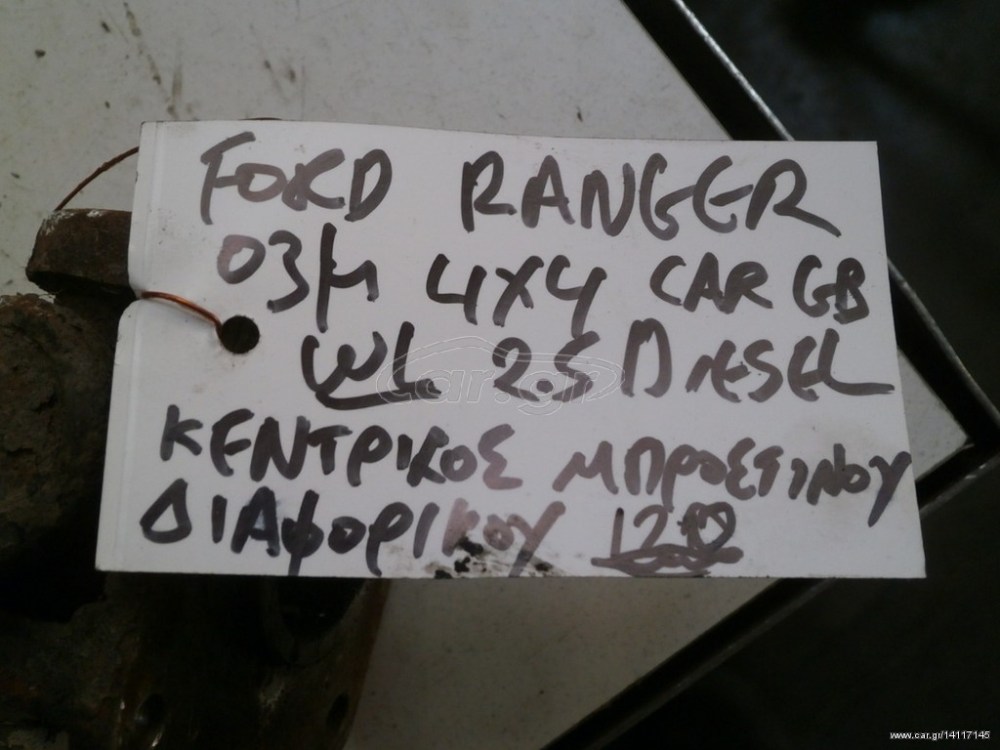 FORD RANGER
03Μ 4X4 CAR GB
WL 2.5 DIESEL
car.gr
ΚΕΝΤΡΙΚΟΣ ΜΠΡΟΣΤΙΝΟΥ
ΔΙΑΦΟΡΙΚΟΥ
www.car.gr/14117145